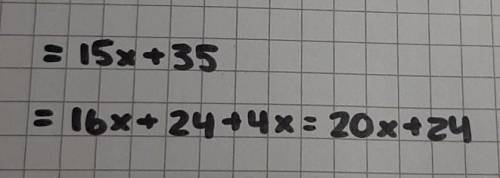 = 15x + 35
= 16x + 24 + 4x = 20x + 24